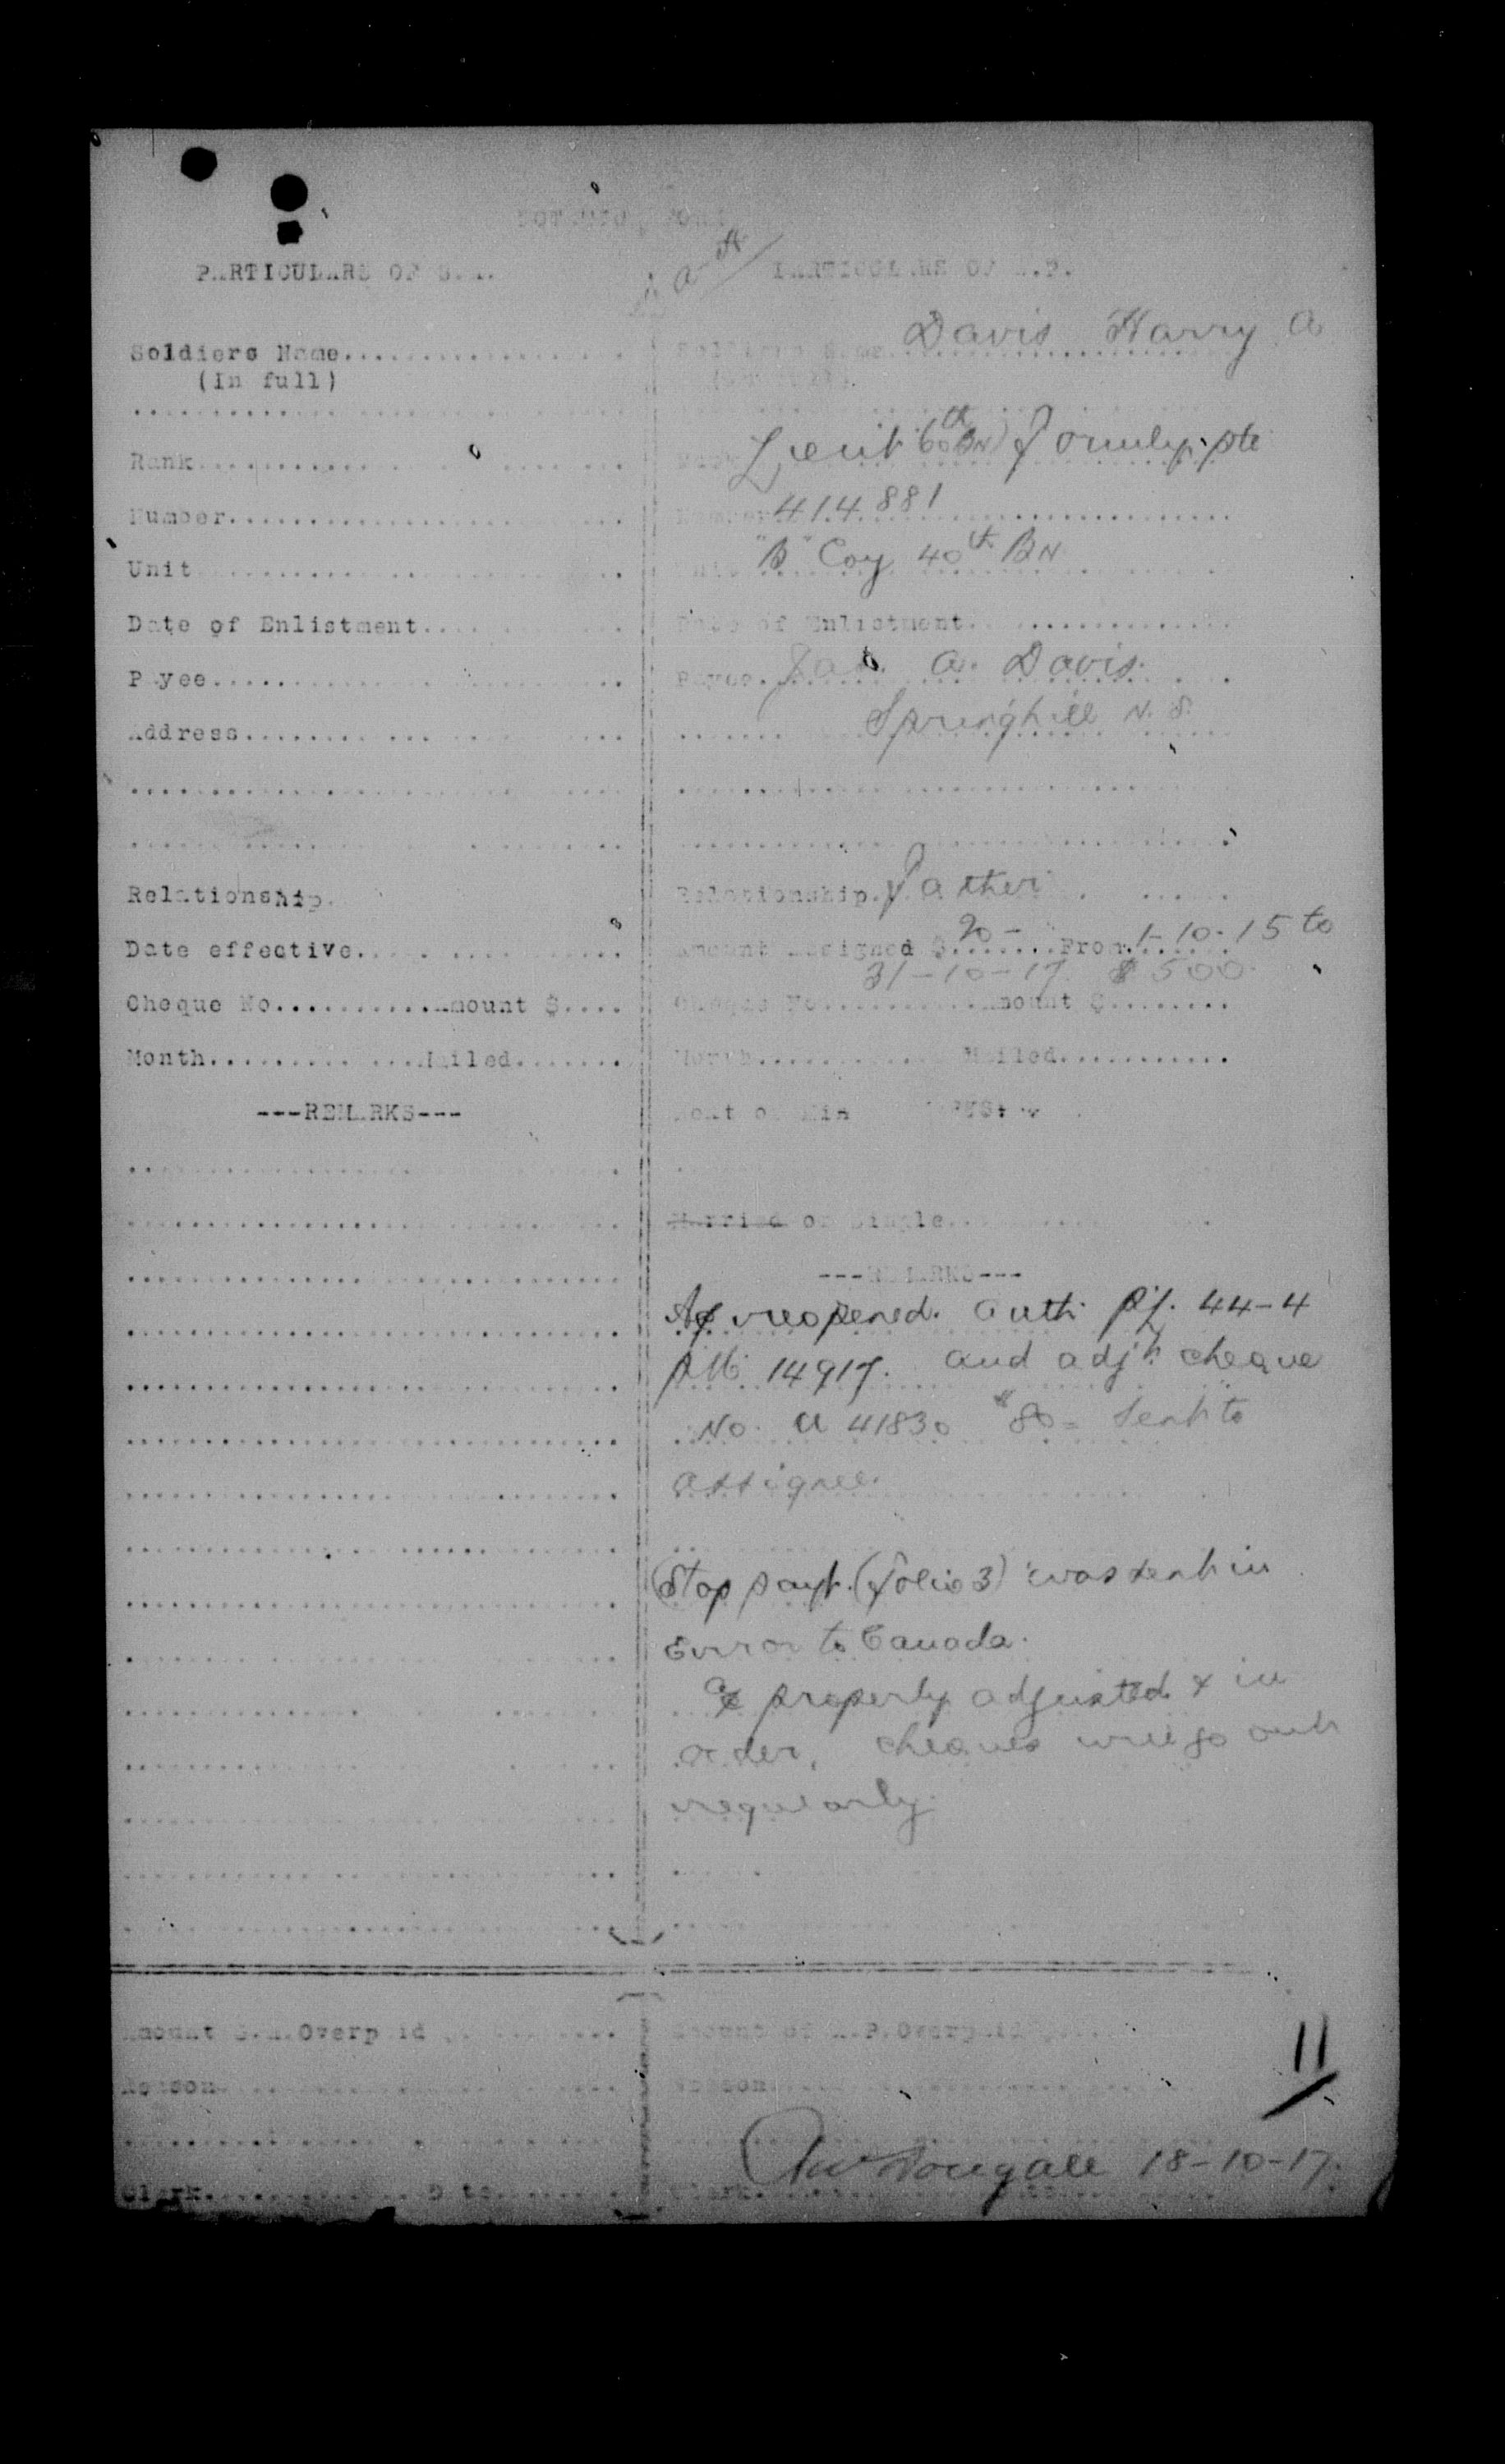 PARTICULARS OF S.A.
PARTICULARS OF A.P.
Soldiers Name
(In full)
Rank
Number
Unit
Date of Enlistment
Payee
Address
Relationship
Date effective
Cheque No...........Amount $....
Month..............Mailed.......
---REMARKS---
Amount S.A.Overpaid
Reason
Clark............Date
Soldiers Name Davis Harry A
(In full)
Rank Lieut 60th BN Formerly Pte
Number 414881
Unit "B" Coy 40th BN
Date of Enlistment
Payee Jas. A. Davis.
Springhill N.S.
Relationship. Father
Amount Assigned $ 20- From 1-10-15 to
31-10-17 $500
Cheque No...........Amount $........
Month............Mailed...........
Married or Single
---REMARKS---
reopened. Auth. 44-4
14917. and adjt. cheque
No. U 41830 $80= sent to
assignee.
(Stop Payt. (folio 3) was sent in
Error to Canada.
a/c properly adjusted & in
order, cheques will go out
regularly.
Amount of A.P.Overpaid
Reason
11
McDougall 18-10-17.
Clark